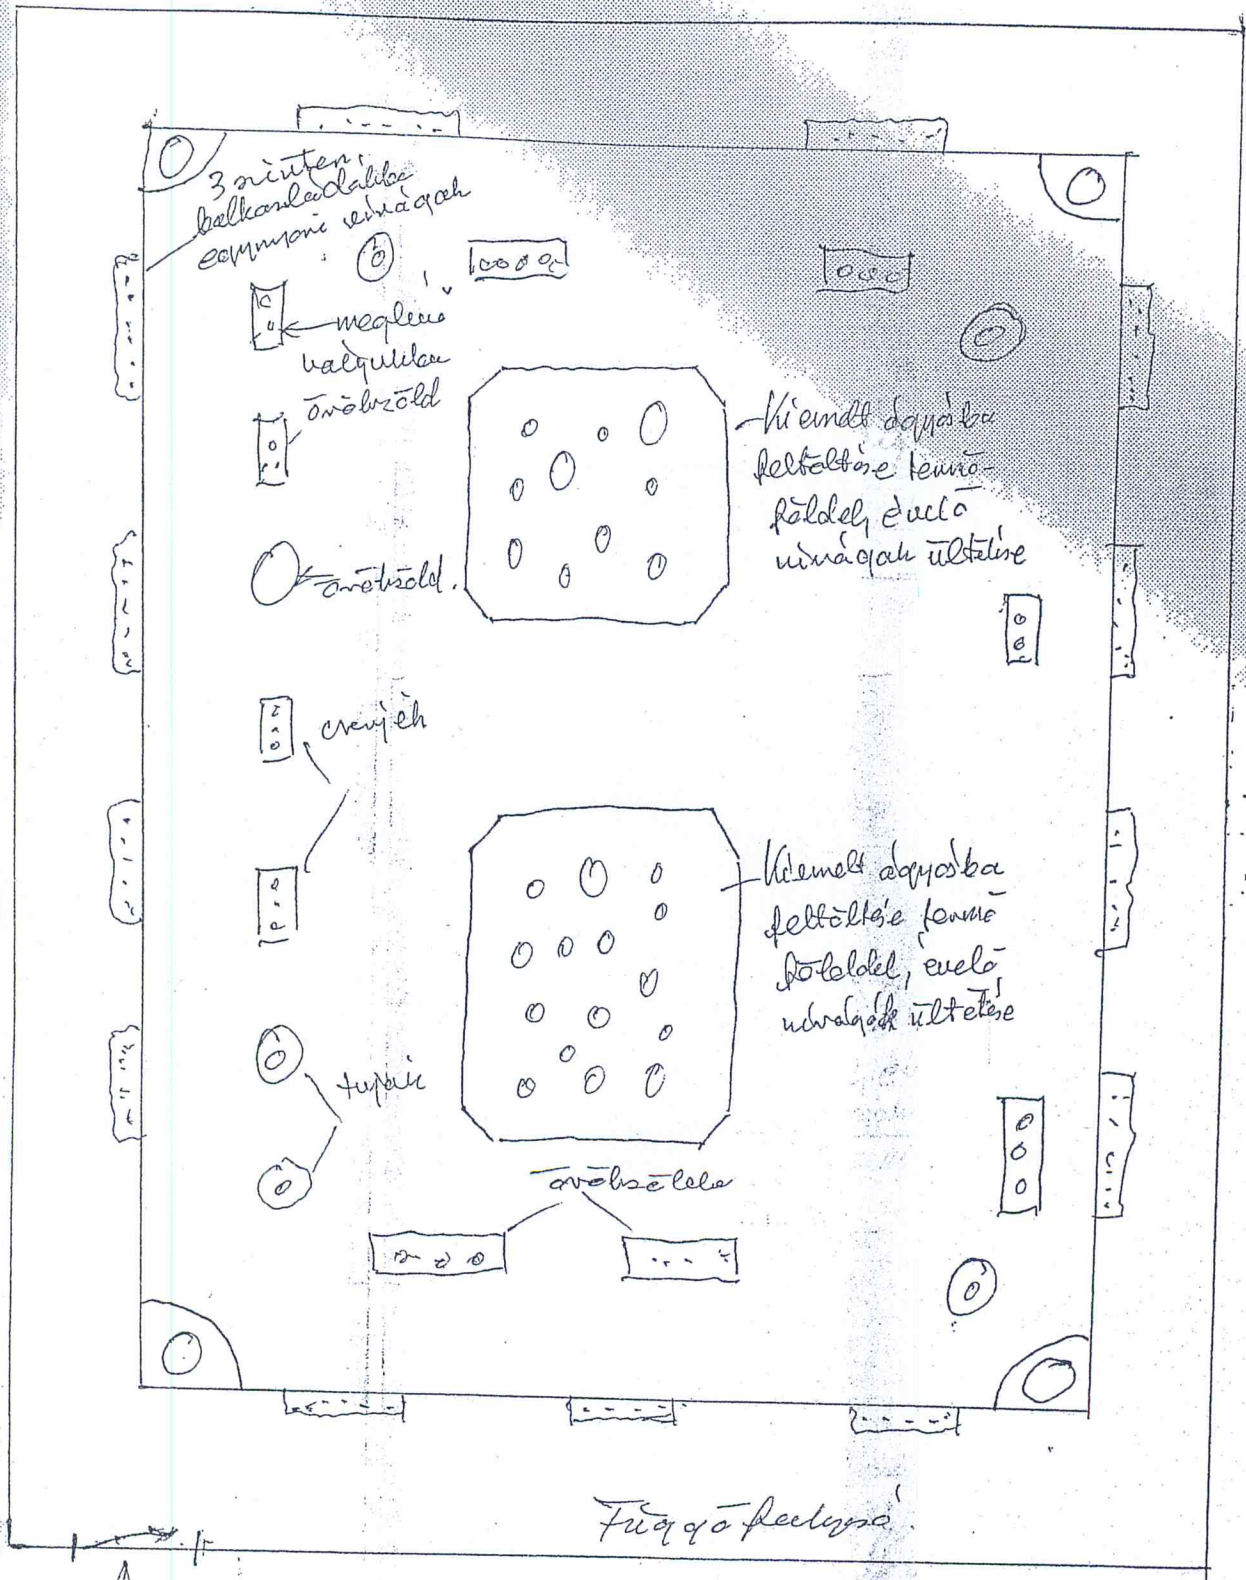 3 szinten,
balkonládákba
egynyári virágok
meglévő
örökzöld
örökzöld.
cserjék
tuják
örökzöldek
Kiemelt ágyásba
feltöltése termő-
földdel, évelő
virágok ültetése
Kiemelt ágyásba
feltöltése termő
földdel, évelő
virágok ültetése
Függő